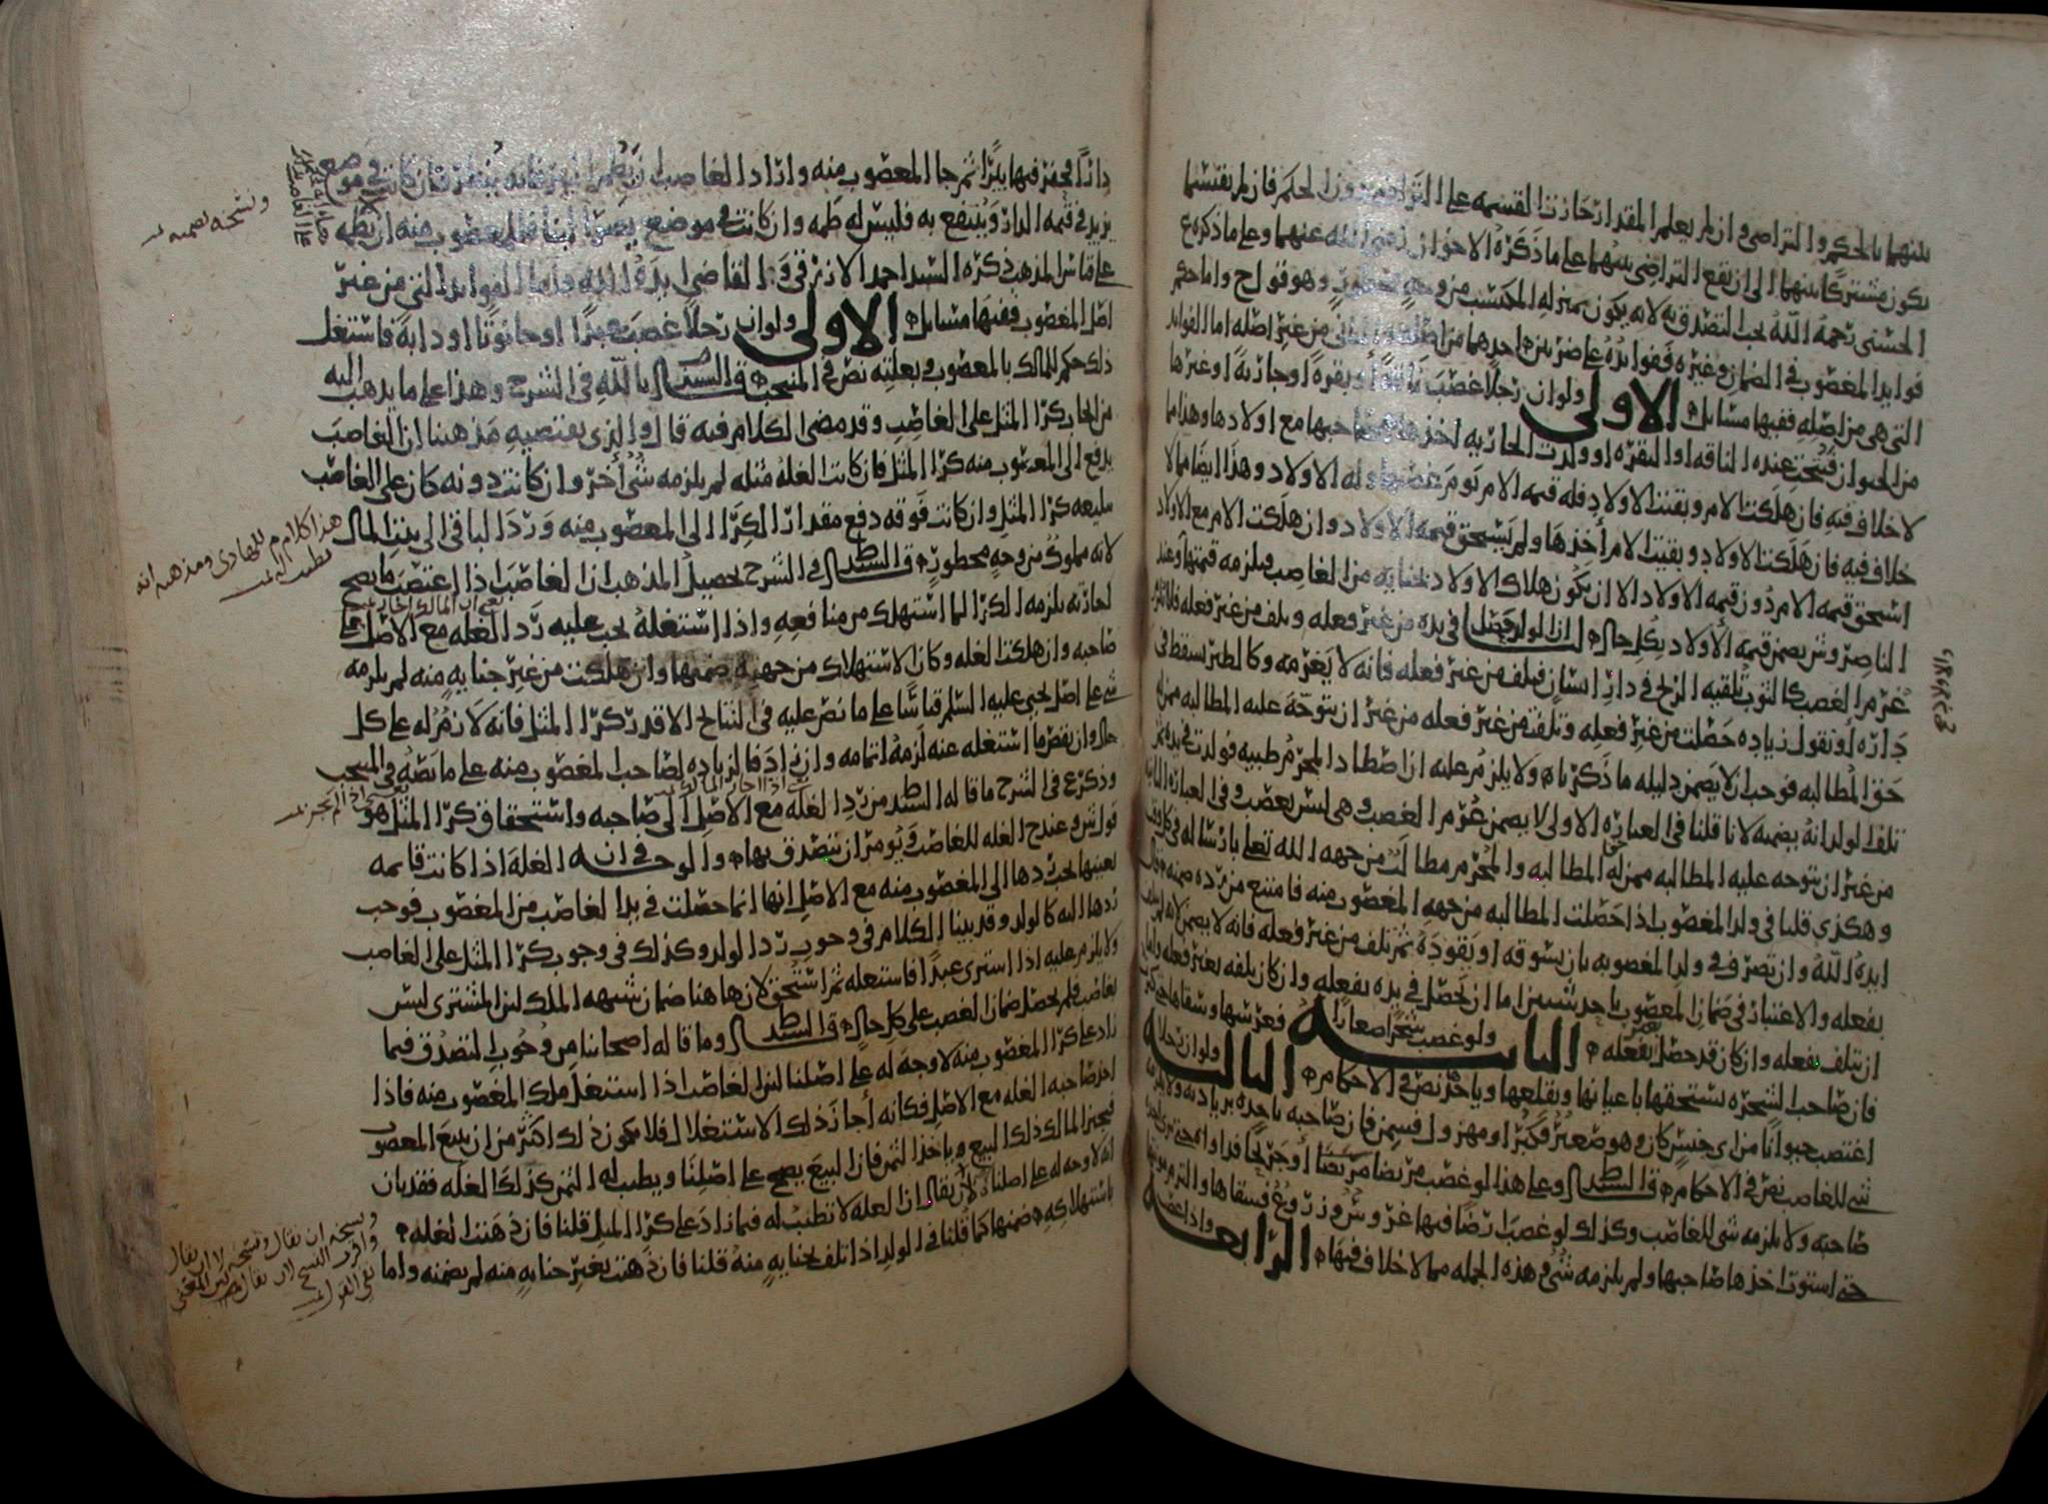 بينهما بالحكم والتراضي وان لم يعلم المقدار جازت القسمه على التراضي دون الحكم فان لم يقتسما
يكون مشتركا بينهما الى ان يقع التراضي بينهما على ما ذكره الاخوان رضي الله عنهما وعلى ما ذكره ع
الحسني رحمه الله يجب التصدق به لانه يكون بمنزله المكتسب من وجه محظور وهو قول ح واما حكم
فوايد المغصوب في الضمان وغيره ففوايده على ضربين احدهما من اصله والثاني من غير اصله اما الفوايد
التي هي من اصله ففيها مسايل الاولى ولو ان رجلا غصب ناقة أو بقرة او جارية او غيرها
من الحيوان فنتجت عنده الناقه او البقره او ولدت الجاريه اخذها صاحبها مع اولادها وهذا مما
لا خلاف فيه فان هلكت الام وبقيت الاولاد فله قيمه الام يوم غصبها وله الاولاد وهذا ايضا مما لا
خلاف فيه فان هلكت الاولاد وبقيت الام أخذها ولم يستحق قيمه الاولاد وان هلكت الام مع الاولاد
استحق قيمه الام دون قيمه الاولاد الا ان يكون هلاك الاولاد بجنايه من الغاصب فيلزمه قيمتها وعند
الناصر وش يضمن قيمه الأولاد بكل حال لنا ان الولد حصل في يده من غير فعله وتلف من غير فعله
غرم الغصب كالثوب تلقيه الريح في دار انسان فيتلف من غير فعله فانه لا يغرمه وكالطير يسقط في
داره او نقول زياده حصلت من غير فعله وتلفت من غير فعله من غير ان يتوجه عليه المطالبه
حق المطالبه فوجب ان لا يضمن دليله ما ذكرناه ولا يلزم عليه ان اصطاد المحرم ظبيه فولدت في يده ثم
تلف الولد انه يضمنه لانا قلنا في العباره الاولى لا يضمن غرم الغصب وهي ليس بغصب وفي العباره الثانيه
من غير ان يتوجه عليه المطالبه ممن له حق المطالبه والمحرم مطالب من جهه الله تعالى بارساله في كل وقت
وهكذى قلنا في ولد المغصوب اذا حصلت المطالبه من جهه المغصوب منه فامتنع من رده ضمنه
ايده الله وان تصرف في ولد المغصوبه بان يسوقه او يقوده ثم تلف من غير فعله فانه لا يضمن
بفعله والاعتبار في ضمان المغصوب باحد شيين اما ان يحصل في يده بفعله وان كان تلفه بغير فعله
ان يتلف بفعله وان كان قد حصل بغير فعله الثانيه ولو غصب شجرا صغارا فغرسها وسقاها حتى كبرت
فان صاحب الشجره يستحقها باعيانها ويقلعها وياخذ نص في الاحكام الثالثه ولو ان رجلا
اغتصب حيوانا من اي جنس كان وهو صغير فكبر او مهزول فسمن فان صاحبه ياخذه بزيادته ولا يلزمه
شي للغاصب نص في الاحكام قال السيد ط وعلى هذا لو غصب مريضا أو جريحا فداواه حتى برئ
صاحبه ولا يلزمه شي للغاصب وكذلك لو غصب ارضا فيها غروس وزروع فسقاها
حتى استوت اخذها صاحبها ولم يلزمه شي وهذه الجمله مما لا خلاف فيها الرابعه واذا غصب
دارا فحفر فيها بيرا ثم جا المغصوب منه واراد الغاصب ان يطم البير فانه ينظر فان كانت في موضع
يزيد في قيمه الدار وينتفع به فليس له طمه وان كانت في موضع يضر البنا فللمغصوب منه ان يطمه
على قياس المذهب ذكره السيد احمد الازرقي القاضي ايده الله واما الفوايد التي من غير
اصل المغصوب ففيها مسايل الاولى ولو ان رجلا غصب عبدا او حانوتا او دابة فاستغل
ذلك حكم للمالك بالمغصوب وبغلته نص في المنتخب قال السيد م بالله في الشرح وهذا على ما يذهب اليه
من ايجاب كرا المثل على الغاصب وقد مضى الكلام فيه قال والذي يقتضيه مذهبنا ان الغاصب
يدفع الى المغصوب منه كرا المثل فان كانت الغلة مثله لم يلزمه شي أخر وان كانت دونه كان على الغاصب
كرا المثل وان كانت فوقه دفع مقدار الكرا الى المغصوب منه ورد الباقي الى بيت المال
لانه مملوك من وجه محظور قال السيد ط في الشرح تحصيل المذهب ان الغاصب اذا اغتصب ما يصح
اجارته يلزمه الكرا لما استهلك من منافعه واذا استغله يجب عليه رد الغله مع الاصل على
صاحبه وان هلكت الغله وكان الاستهلاك من جهته ضمنها وان هلكت من غير جنايه منه لم يلزمه
شي على اصل يحيى عليه السلم قياسا على ما نص عليه في النتايج الا قدر كرا المثل فانه لازم له على كل
حال وان نقص ما استغله عنه لزمه اتمامه وان زاد فالزياده لصاحب المغصوب منه على ما نصه في المنتخب
وذكر ع في الشرح ما قاله السيد ط من رد الغله مع الاصل الى صاحبه واستحقاق كرا المثل هو
قول ش وعند ح الغله للغاصب ويومر ان يتصدق بها والوجه في ان الغله اذا كانت قايمه
بعينها يجب ردها الى المغصوب منه مع الاصل انها انما حصلت في يد الغاصب من المغصوب فوجب
ردها اليه كالولد وقد بينا الكلام في وجوب رد الولد وكذلك في وجوب كرا المثل على الغاصب
ولا يلزم عليه اذا اشترى عبدا فاستغله ثم استحق لان هاهنا ضمان شبهه الملك لان المشتري ليس
بغاصب فلم يحصل ضمان الغصب على كل حال قال السيد ط وما قاله اصحابنا من وجوب التصدق فيما
زاد على كرا المغصوب منه لا وجه له على اصلنا لان الغاصب اذا استغل ملك المغصوب منه فاذا
اخذ صاحبه الغله مع الاصل فكانه أجاز ذلك الاستغلال فلا يكون ذلك اكثر من ان يبيع المغصوب
فيجيز المالك ذلك البيع وياخذ الثمن فان البيع يصح على اصلنا ويطيب له الثمن كذلك الغله فقد بان
انه لا وجه له على اصلنا لأن يقال ان الغله لا تطيب له فيما زاد على كرا المثل قلنا فان ذهبت الغله
باستهلاكه ضمنها كما قلنا في الولد اذا تلف بجنايه منه قلنا فان ذهبت بغير جنايه منه لم يضمنه واما
ونسخه يضمنه
هذا كلام م للهادي ومذهبه انه
يطيب له